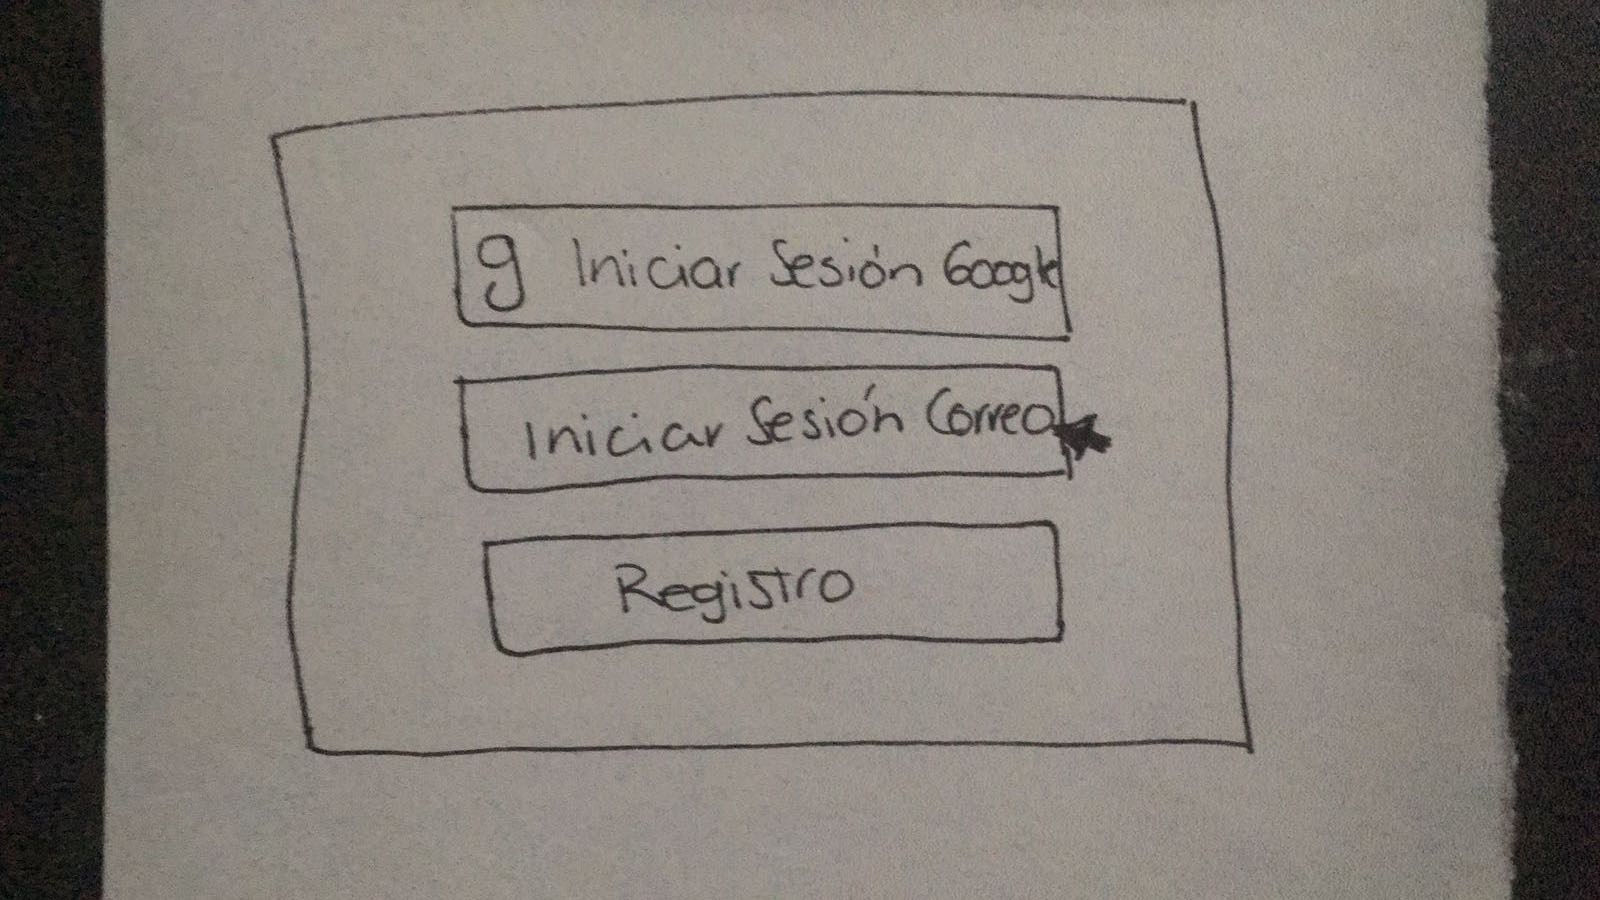 g Iniciar Sesión Google
Iniciar Sesión Correo
Registro